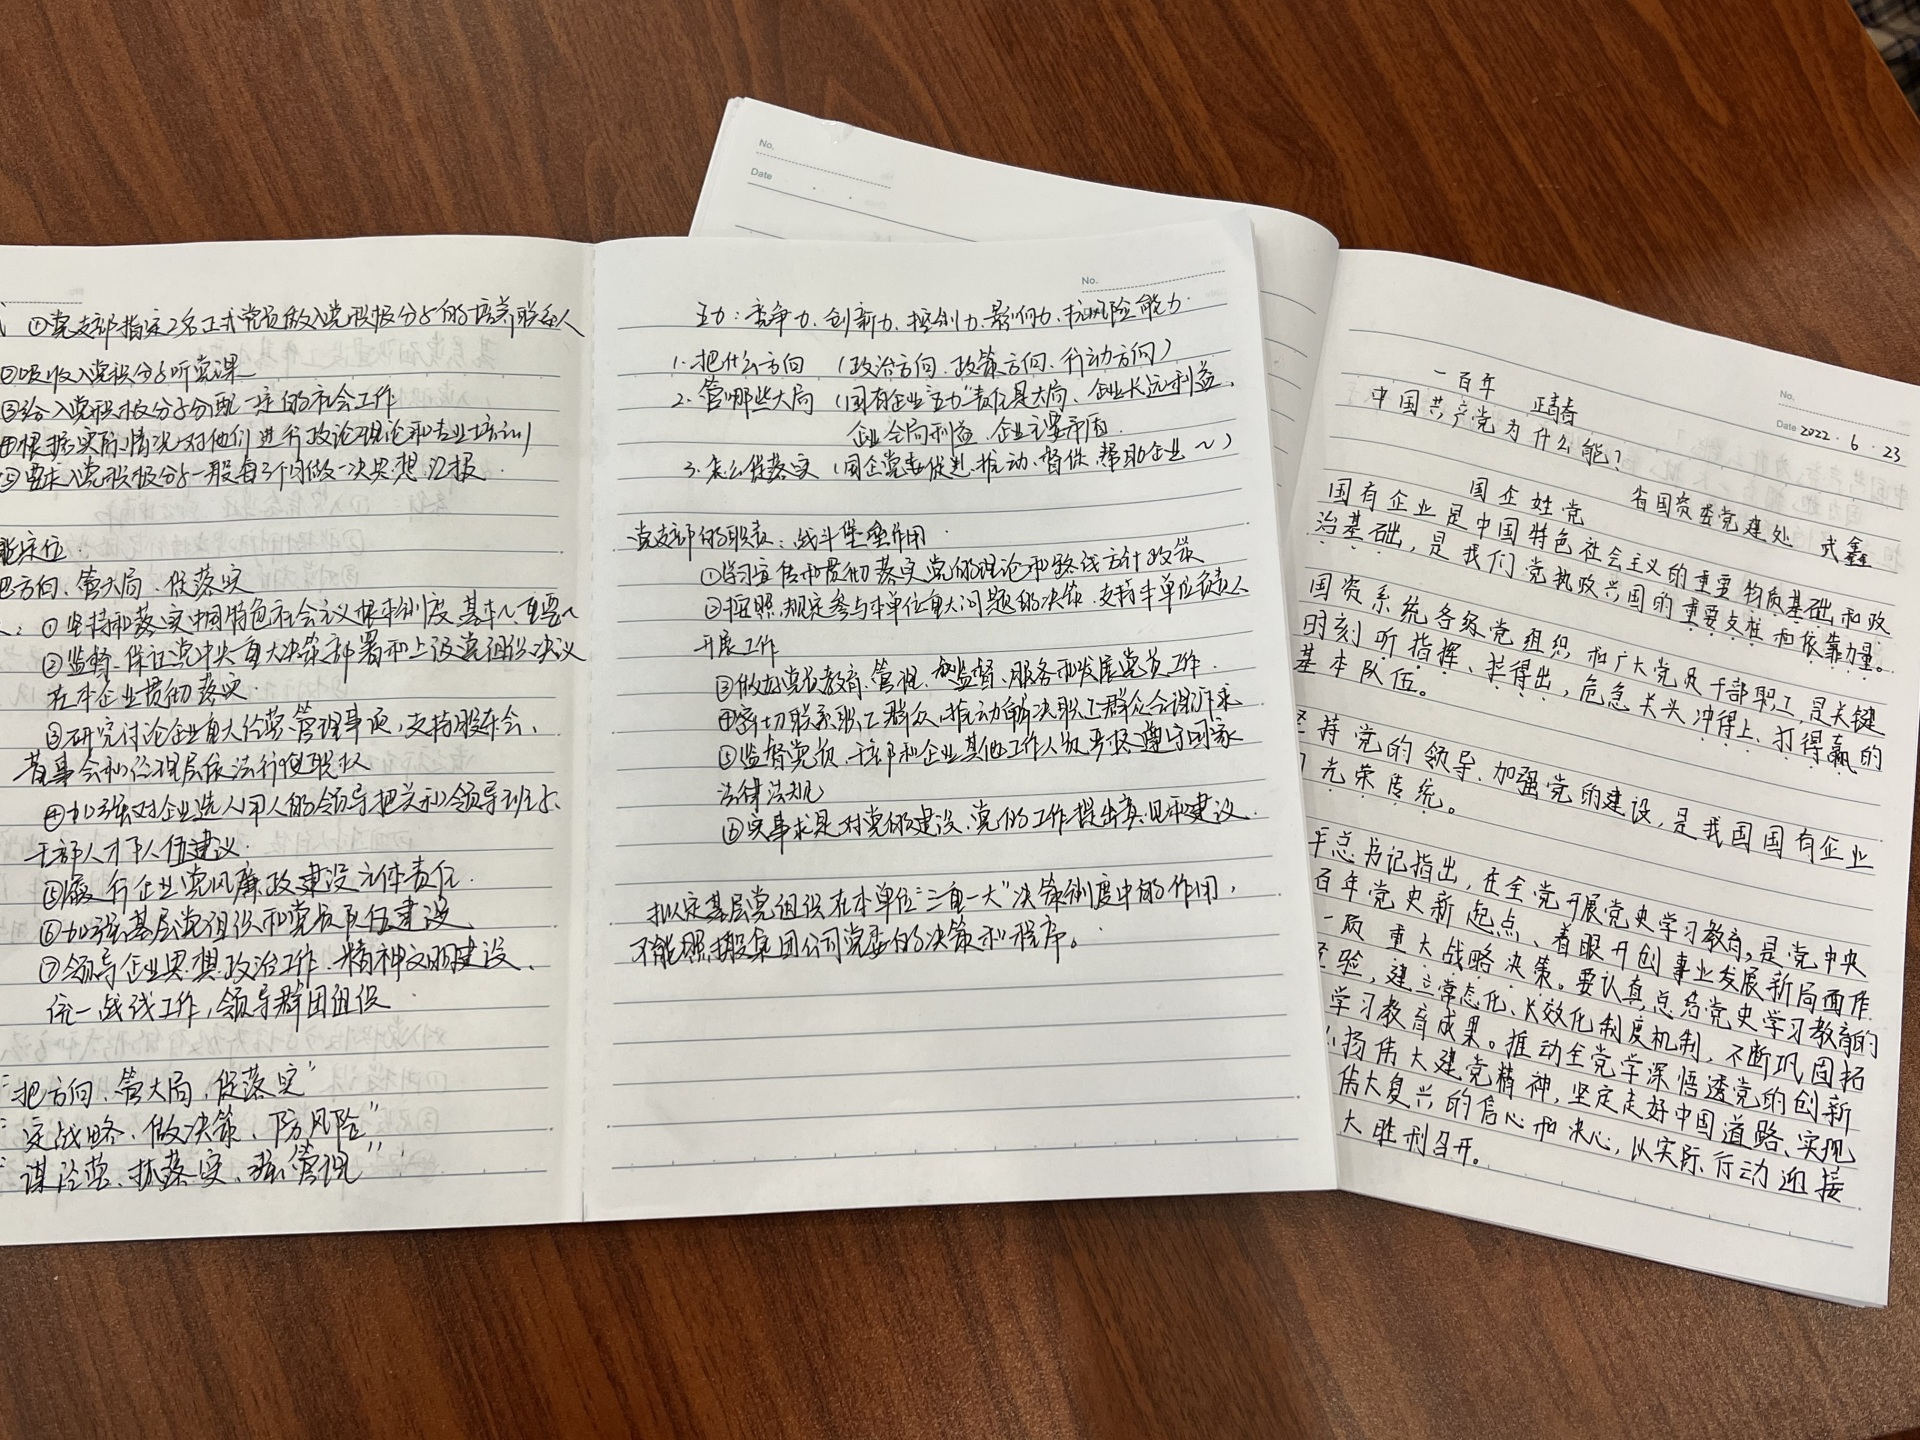 ①党支部指定2名正式党员做入党积极分子的培养联系人
②吸收入党积极分子听党课
③给入党积极分子分配一定的社会工作
④根据实际情况对他们进行政治理论和专业培训
⑤要求入党积极分子一般每3个月做一次思想汇报
能定位
把方向、管大局、促落实
①坚持和落实中国特色社会主义根本制度、基本~重要~
②监督、保证党中央重大决策部署和上级党组织决议
在本企业贯彻落实
③研究讨论企业重大经营管理事项,支持股东会、
董事会和经理层依法行使职权
④加强对企业选人用人的领导把关和领导班子、
干部人才队伍建议
⑤履行企业党风廉政建设主体责任
⑥加强基层党组织和党员队伍建设
⑦领导企业思想政治工作、精神文明建设、
统一战线工作,领导群团组织
"把方向、管大局、促落实"
定战略、做决策、防风险"
谋经营、抓落实、强管理"
No.
Date
No.
五力:竞争力、创新力、控制力、影响力、抗风险能力
1.把什么方向 (政治方向、政策方向、行动方向)
2.管哪些大局 (国有企业主力"责任是大局、企业长远利益、
企业全局利益、企业主要
3.怎么促落实 (国企党委促进、推动、督促、帮助企业~)
党支部的职责:战斗堡垒作用
①学习宣传和贯彻落实党的理论和路线方针政策
②按照规定参与本单位重大问题的决策,支持本单位负责人
开展工作
③做好党员教育、管理、监督、服务和发展党员工作
④密切联系职工群众,推动解决职工群众合理诉求
⑤监督党员、干部和企业其他工作人员严格遵守国家
法律法规
⑥实事求是对党的建设、党的工作提出意见和建议
拟定基层党组织在本单位"三重一大"决策制度中的作用,
不能照搬集团公司党委的决策和程序。
No.
Date 2022.6.23
一百年 正青春
中国共产党为什么能?
国企姓党 省国资委党建处 武鑫
国有企业是中国特色社会主义的重要物质基础和政
治基础,是我们党执政兴国的重要支柱和依靠力量。
国资系统各级党组织和广大党员干部职工,是关键
时刻听指挥、拉得出,危急关头冲得上、打得赢的
基本队伍。
坚持党的领导、加强党的建设,是我国国有企业
光荣传统。
平总书记指出,在全党开展党史学习教育,是党中央
百年党史新起点、着眼开创事业发展新局面作
一项重大战略决策。要认真总结党史学习教育的
经验,建立常态化、长效化制度机制,不断巩固拓
学习教育成果。推动全党学深悟透党的创新
扬伟大建党精神,坚定走好中国道路、实现
伟大复兴的信心和决心,以实际行动迎接
大胜利召开。